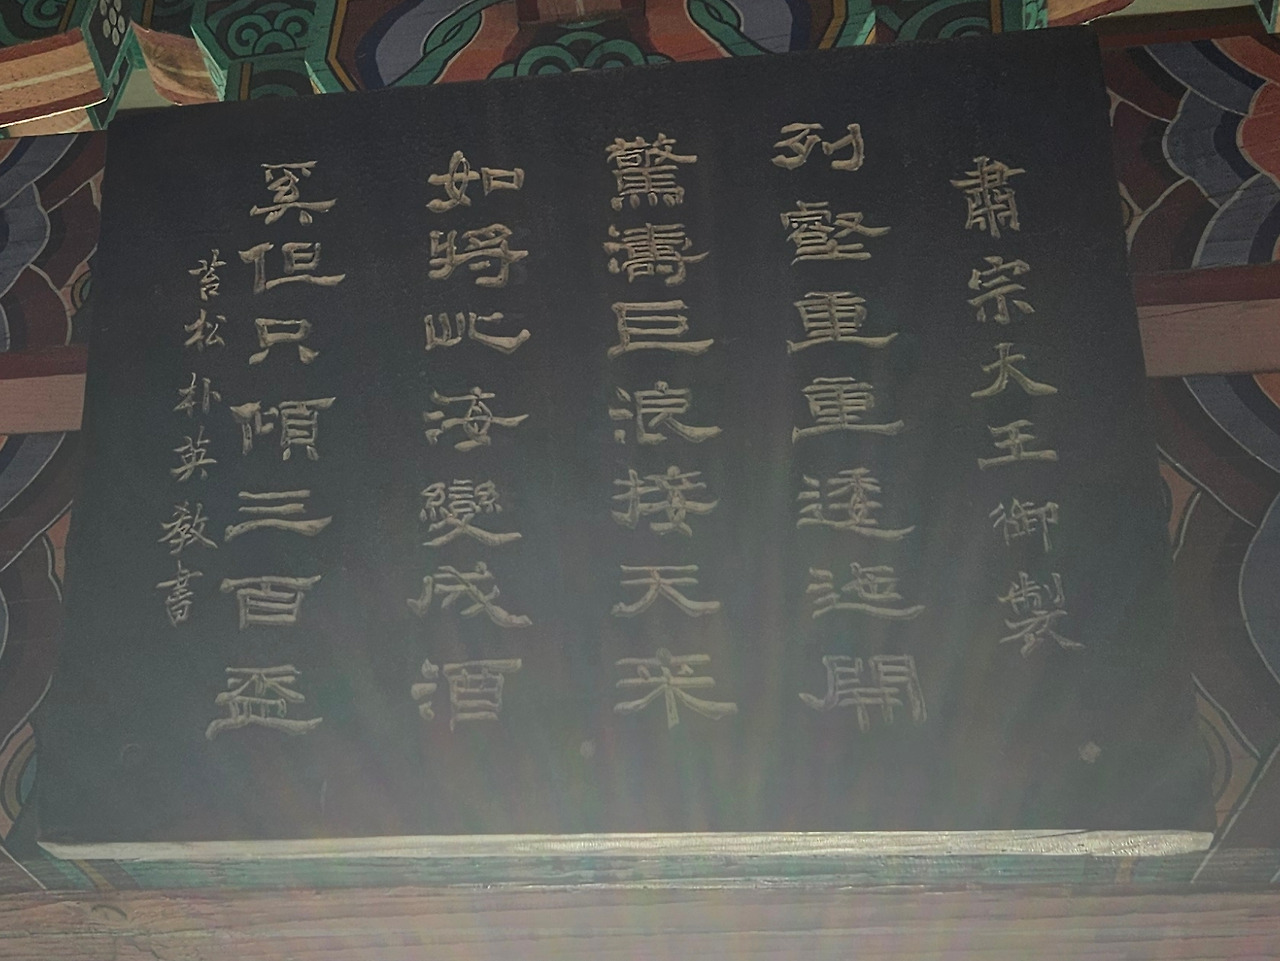 肅宗大王御製
列壑重重逶迤開
驚濤巨浪接天来
如將此海變成酒
奚但只傾三百盃
苔松朴英敎書